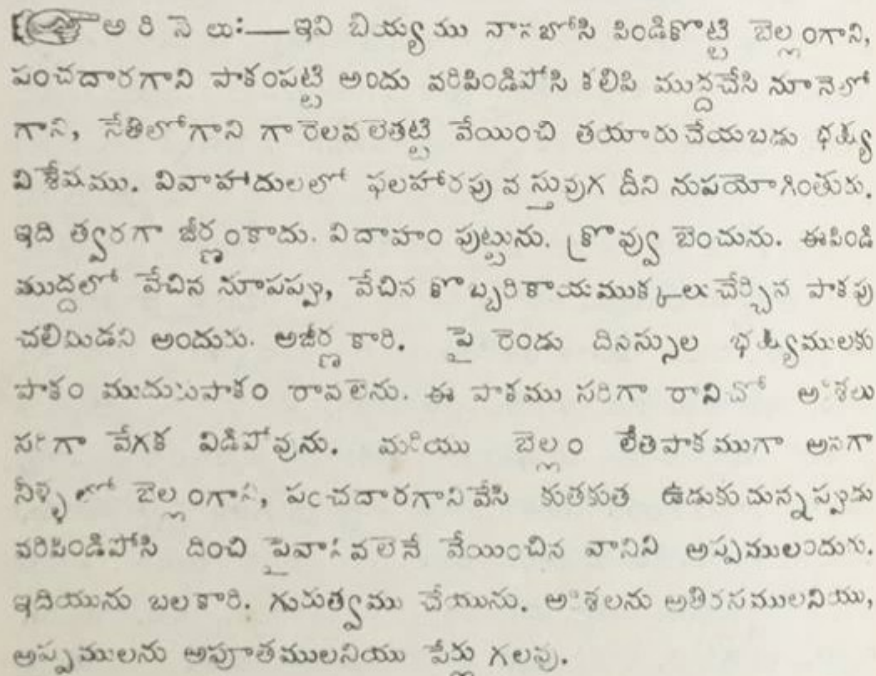 అరిసెలు:—ఇవి బియ్యము నానబోసి పిండికొట్టి బెల్లంగాని,
పంచదారగాని పాకంపట్టి అందు వరిపిండిపోసి కలిపి ముద్దచేసి నూనెలో
గాని, నేతిలోగాని గారెలవలెతట్టి వేయించి తయారుచేయబడు భక్ష్య
విశేషము. వివాహాదులలో ఫలహారపు వస్తువుగ దీని నుపయోగింతురు.
ఇది త్వరగా జీర్ణంకాదు. విదాహం పుట్టును. క్రొవ్వు బెంచును. ఈపిండి
ముద్దలో వేచిన నూపప్పు, వేచిన కొబ్బరికాయముక్కలు చేర్చిన పాకపు
చలిమిడని అందురు. అజీర్ణకారి. పై రెండు దినస్సుల భక్ష్యములకు
పాకం ముదురుపాకం రావలెను. ఈ పాకము సరిగా రానిచో అరిశలు
సరిగా వేగక విడిపోవును. మరియు బెల్లం లేతపాకముగా అనగా
నీళ్ళలో బెల్లంగాని, పంచదారగానివేసి కుతకుత ఉడుకుచున్నప్పుడు
వరిపిండిపోసి దించి పైవానివలెనే వేయించిన వానిని అప్పములందురు.
ఇదియును బలకారి. గురుత్వము చేయును. అరిశలను అతిరసములనియు,
అప్పములను అపూతములనియు పేర్లు గలవు.